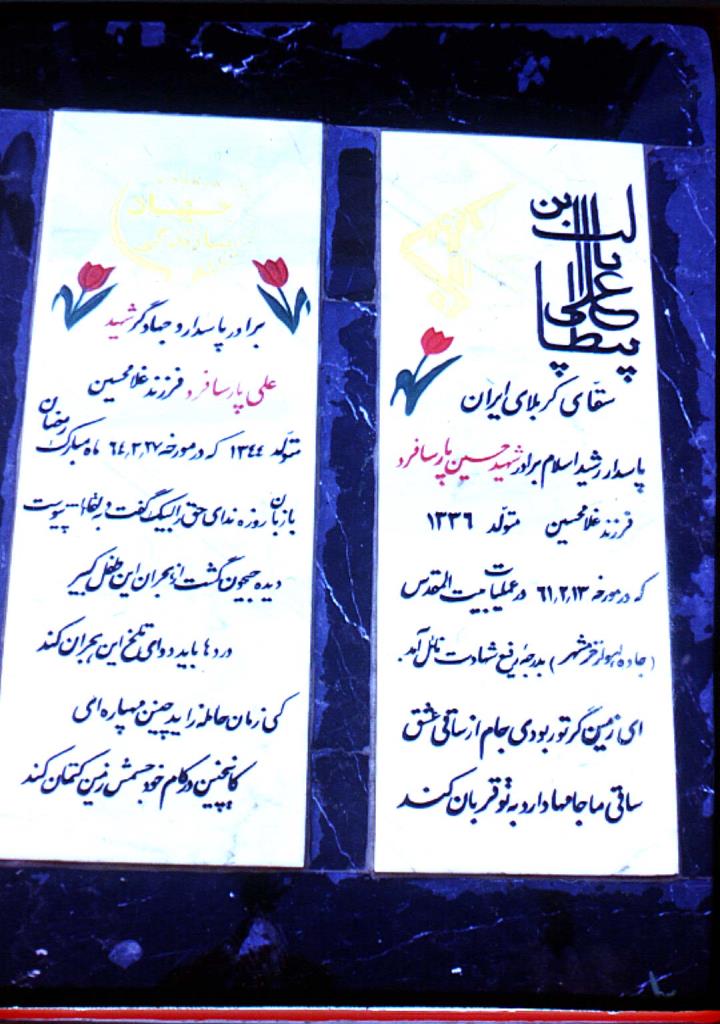 علی بن ابیطالب
سقّای کربلای ایران
پاسدار رشید اسلام برادر شهید حسین پارسافرد
فرزند غلامحسین متولد ۱۳۳۶
که در مورخه ۶۱٫۲٫۱۳ در عملیات بیت المقدس
(جاده اهواز خرمشهر) بدرجهٔ رفیع شهادت نائل آمد
ای زمین گر تو ربودی جام از ساقی عشق
ساقی ما جامها دارد به تو قربان کند
جهاد
سازندگی
برادر پاسدار و جهادگر شهید
علی پارسافرد فرزند غلامحسین
متولد ۱۳۴۴ که در مورخه ۶۴٫۳٫۲۷ ماه مبارک رمضان
با زبان روزه ندای حق را لبیک گفت و به لقاء الله پیوست
دیده جیحون گشت از بحران این طفل کبیر
دردها باید دوای تلخ این بحران کند
کی زمان حامله زاید چنین مهپاره ای
کاینچنین در کام خود جسمش زمین کتمان کند